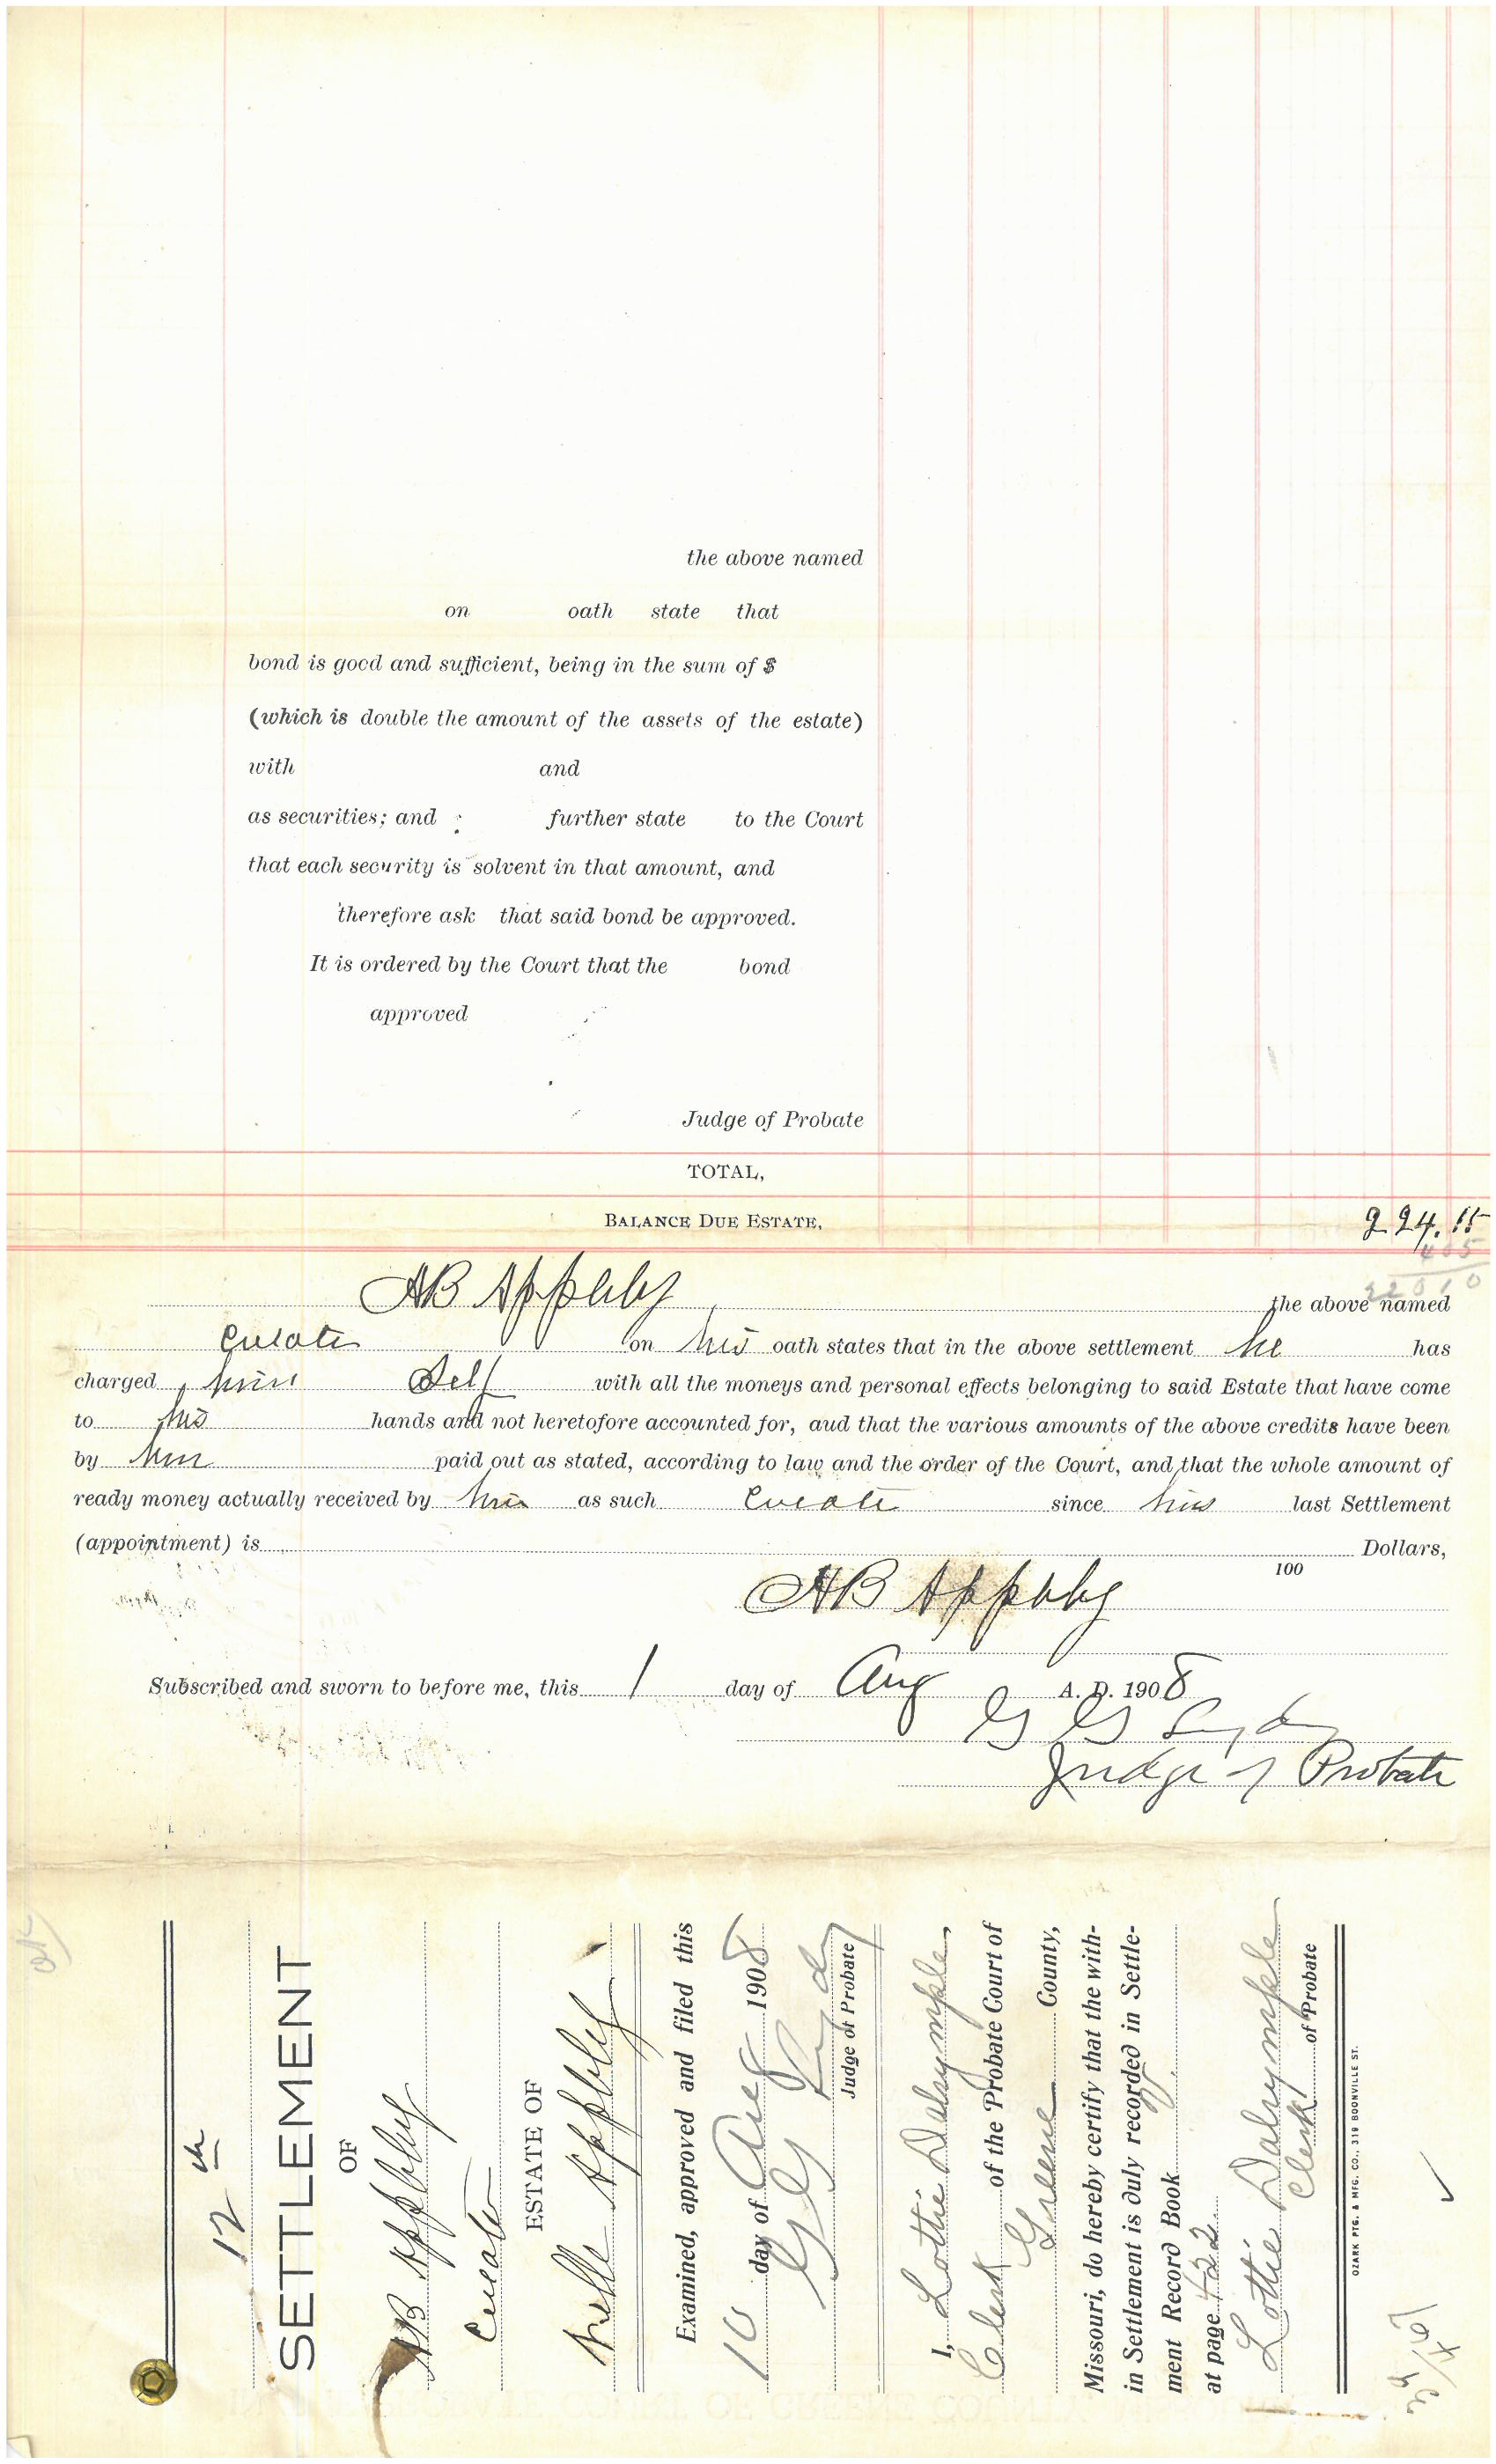 the above named
on oath state that
bond is good and sufficient, being in the sum of $
(which is double the amount of the assets of the estate)
with and
as securities; and further state to the Court
that each security is solvent in that amount, and
therefore ask that said bond be approved.
It is ordered by the Court that the bond
approved
Judge of Probate
TOTAL,
BALANCE DUE ESTATE, 224.15
405
22010
AB Appleby the above named
Curator on his oath states that in the above settlement he has
charged him Self with all the moneys and personal effects belonging to said Estate that have come
to his hands and not heretofore accounted for, aud that the various amounts of the above credits have been
by him paid out as stated, according to law and the order of the Court, and that the whole amount of
ready money actually received by him as such Curator since his last Settlement
(appointment) is Dollars,
100
AB Appleby
Subscribed and sworn to before me, this 1 day of Aug A. D. 1908
G G Lydy
Judge of Probate
12th
SETTLEMENT
OF
AB Appleby
Curator
ESTATE OF
Nelle Appleby
Examined, approved and filed this
10 day of Aug 1908
G G Lydy
Judge of Probate
I, Lottie Dalrymple,
Clerk of the Probate Court of
Greene County,
Missouri, do hereby certify that the with-
in Settlement is duly recorded in Settle-
ment Record Book
at page 422
Lottie Dalrymple
Clerk of Probate
OZARK PTG. & MFG. CO., 319 BOONVILLE ST.